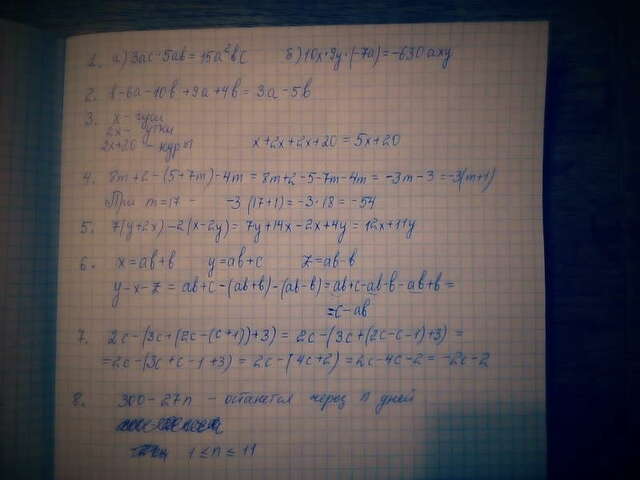 1. а) 3ac·5ab = 15a²bc б) 10x·9y·(-7a) = -630axy
2. b-6a-10b+9a+4b = 3a-5b
3. x - гуси
2x - утки
2x+20 - куры x+2x+2x+20 = 5x+20
4. 8m+2-(5+7m)-4m = 8m+2-5-7m-4m = -3m-3 = -3(m+1)
При m=17 - -3(17+1) = -3·18 = -54
5. 7(y+2x)-2(x-2y) = 7y+14x-2x+4y = 12x+11y
6. x=ab+b y=ab+c z=ab-b
y-x-z = ab+c-(ab+b)-(ab-b) = ab+c-ab-b-ab+b =
=c-ab
7. 2c-(3c+(2c-(c+1))+3) = 2c-(3c+(2c-c-1)+3) =
=2c-(3c+c-1+3) = 2c-(4c+2) = 2c-4c-2 = -2c-2
8. 300-27n - останется через n дней
1≤n≤11